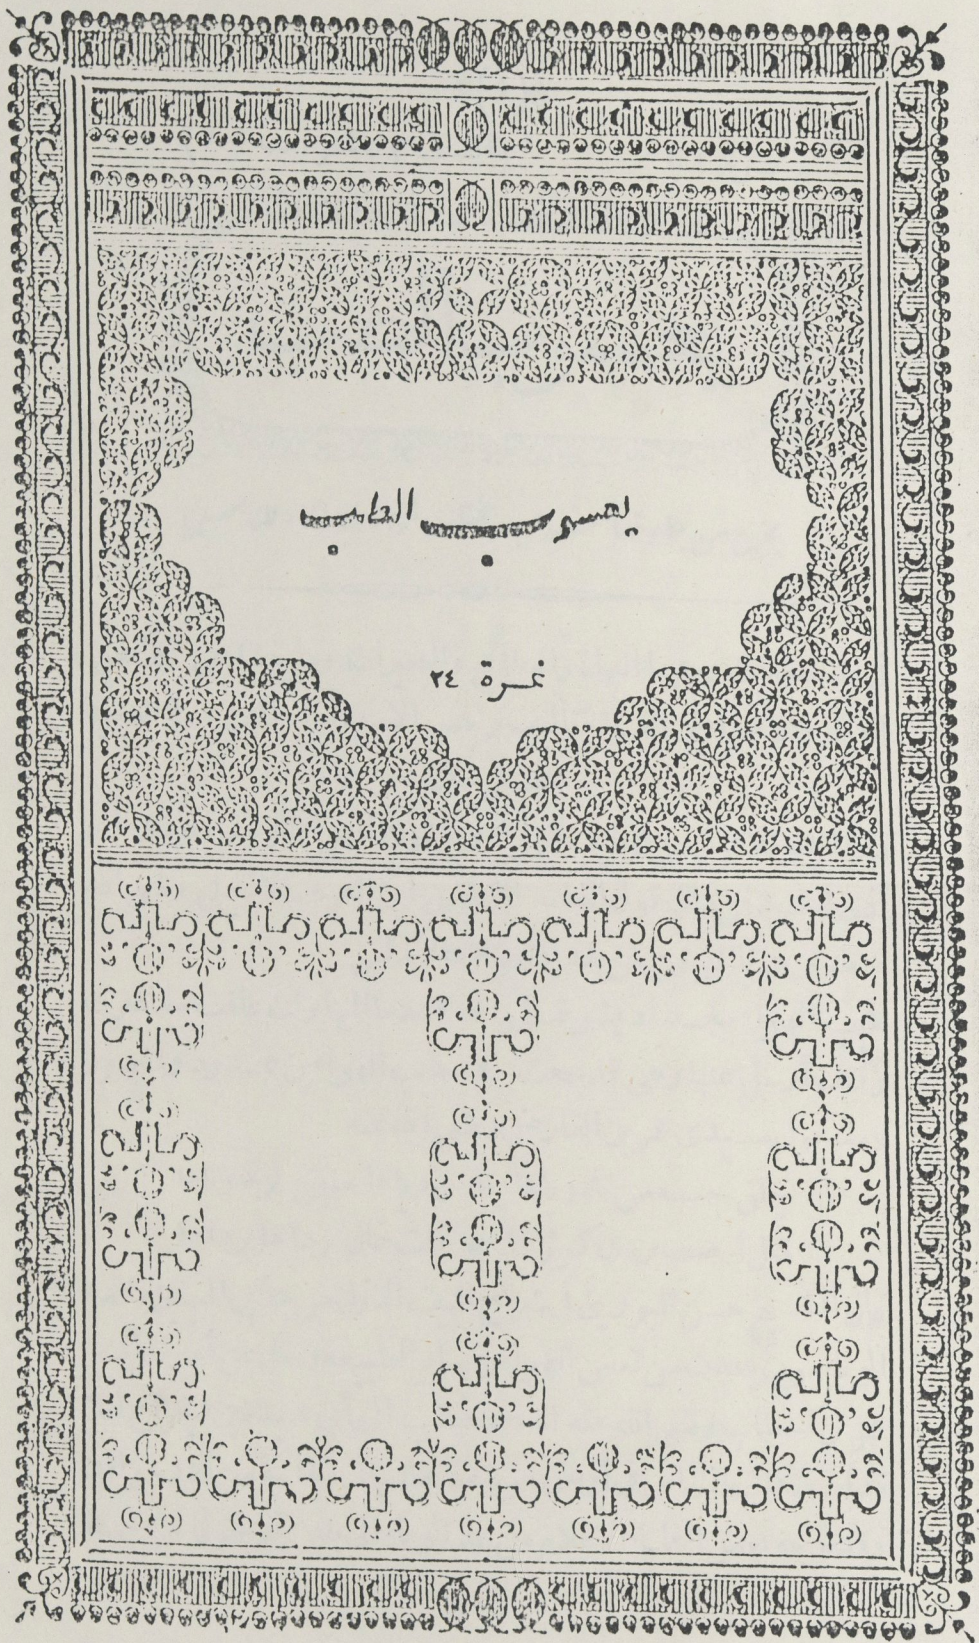 يعسوب الطب
نمرة ٣٤